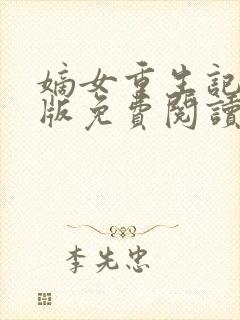 嫡女重生記
版免費閱讀
李先忠